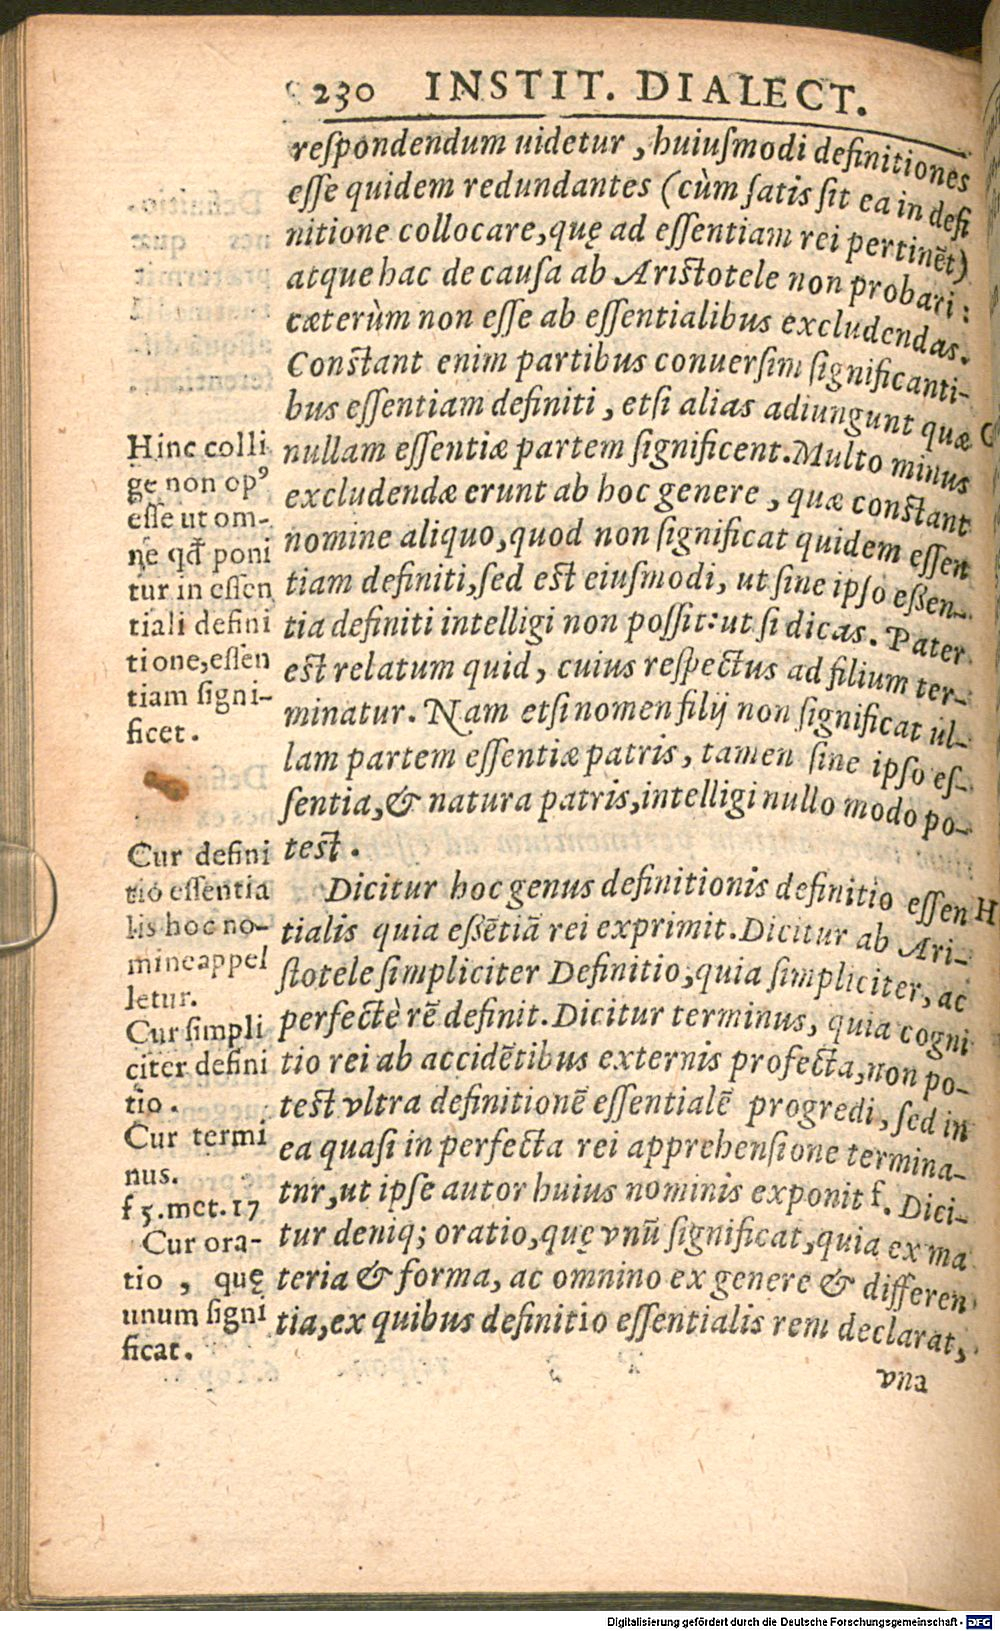 230 INSTIT. DIALECT.
reſpondendum uidetur, huiuſmodi definitiones
eſſe quidem redundantes (cùm ſatis ſit ea in defi
nitione collocare, quę ad eſſentiam rei pertinēt)
atque hac de cauſa ab Ariſtotele non probari:
cæterùm non eſſe ab eſſentialibus excludendas.
Conſtant enim partibus conuerſim ſignificanti-
bus eſſentiam definiti, etſi alias adiungunt quæ
nullam eſſentiæ partem ſignificent. Multo minus
excludendæ erunt ab hoc genere, quæ conſtant
nomine aliquo, quod non ſignificat quidem eſſen
tiam definiti, ſed eſt eiuſmodi, ut ſine ipſo eßen-
tia definiti intelligi non poſſit: ut ſi dicas. Pater
eſt relatum quid, cuius reſpectus ad filium ter-
minatur. Nam etſi nomen filij non ſignificat ul-
lam partem eſſentiæ patris, tamen ſine ipſo eſ-
ſentia, & natura patris, intelligi nullo modo po-
teſt.
Dicitur hoc genus definitionis definitio eſſen
tialis quia eßētiā rei exprimit. Dicitur ab Ari-
ſtotele ſimpliciter Definitio, quia ſimpliciter, ac
perfectè rē definit. Dicitur terminus, quia cogni
tio rei ab accidētibus externis profecta, non po-
teſt vltra definitionē eſſentialē progredi, ſed in
ea quaſi in perfecta rei apprehenſione termina-
tur, ut ipſe autor huius nominis exponit f. Dici-
tur deniq; oratio, quę vnū ſignificat, quia ex ma
teria & forma, ac omnino ex genere & differen
tia, ex quibus definitio eſſentialis rem declarat,
vna
Hinc colli
ge non op⁹
eſſe ut om-
ne qđ poni
tur in eſſen
tiali defini
tione, eſſen
tiam ſigni-
ficet.
Cur defini
tio eſſentia
lis hoc no-
mine appel
letur.
Cur ſimpli
citer defini
tio.
Cur termi
nus.
f 5. met. 17
Cur ora-
tio, quę
unum ſigni
ficat.
G
H
Digitalisierung gefördert durch die Deutsche Forschungsgemeinschaft - DFG